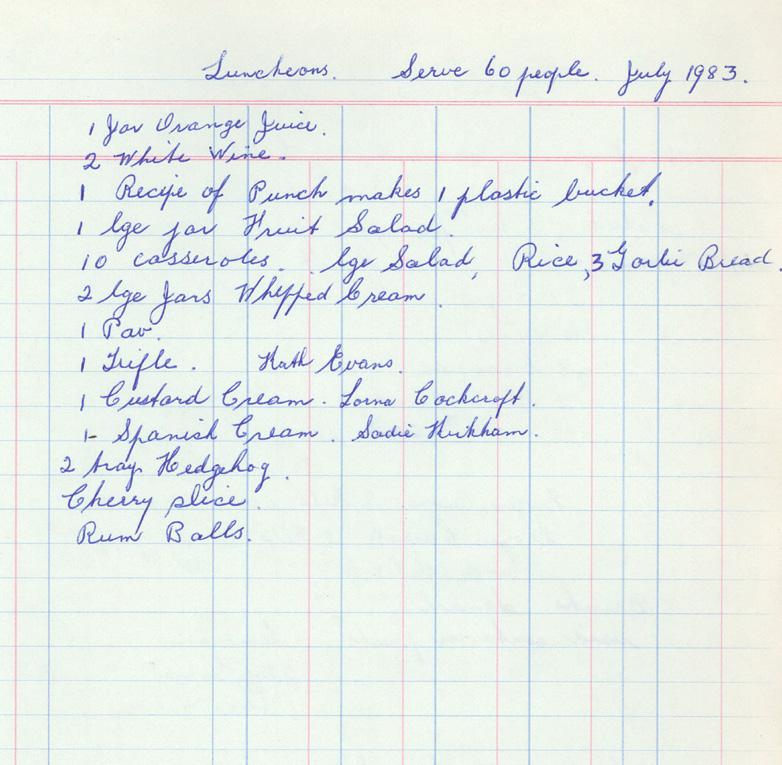 Luncheons. Serve 60 people. July 1983.
1 Jar Orange Juice.
2 White Wine.
1 Recipe of Punch makes 1 plastic bucket.
1 lge jar Fruit Salad.
10 casseroles. lge Salad, Rice, 3 Garlic Bread.
2 lge Jars Whipped Cream.
1 Pav.
1 Trifle. Kath Evans.
1 Custard Cream. Lorna Cockcroft.
1- Spanish Cream. Sadie
2 trays Hedgehog.
Cherry slice.
Rum Balls.